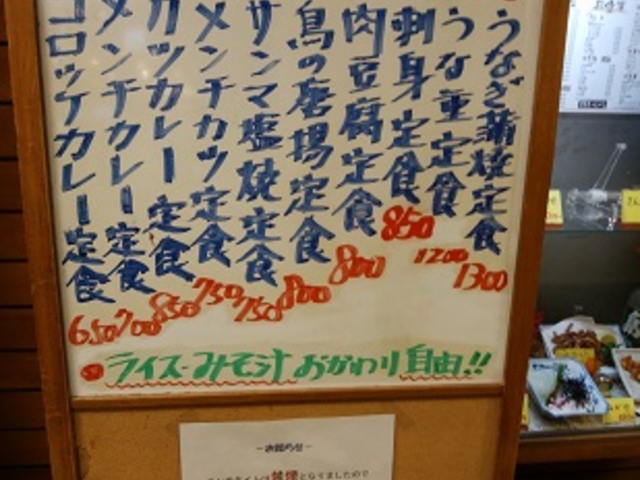 うなぎ蒲焼定食 1300
うな重定食 1200
刺身定食 850
肉豆腐定食 800
鳥の唐揚定食 800
サンマ塩焼定食 750
メンチカツ定食 750
カツカレー定食 850
メンチカレー定食 700
コロッケカレー定食 650
ライス・みそ汁おかわり自由!!